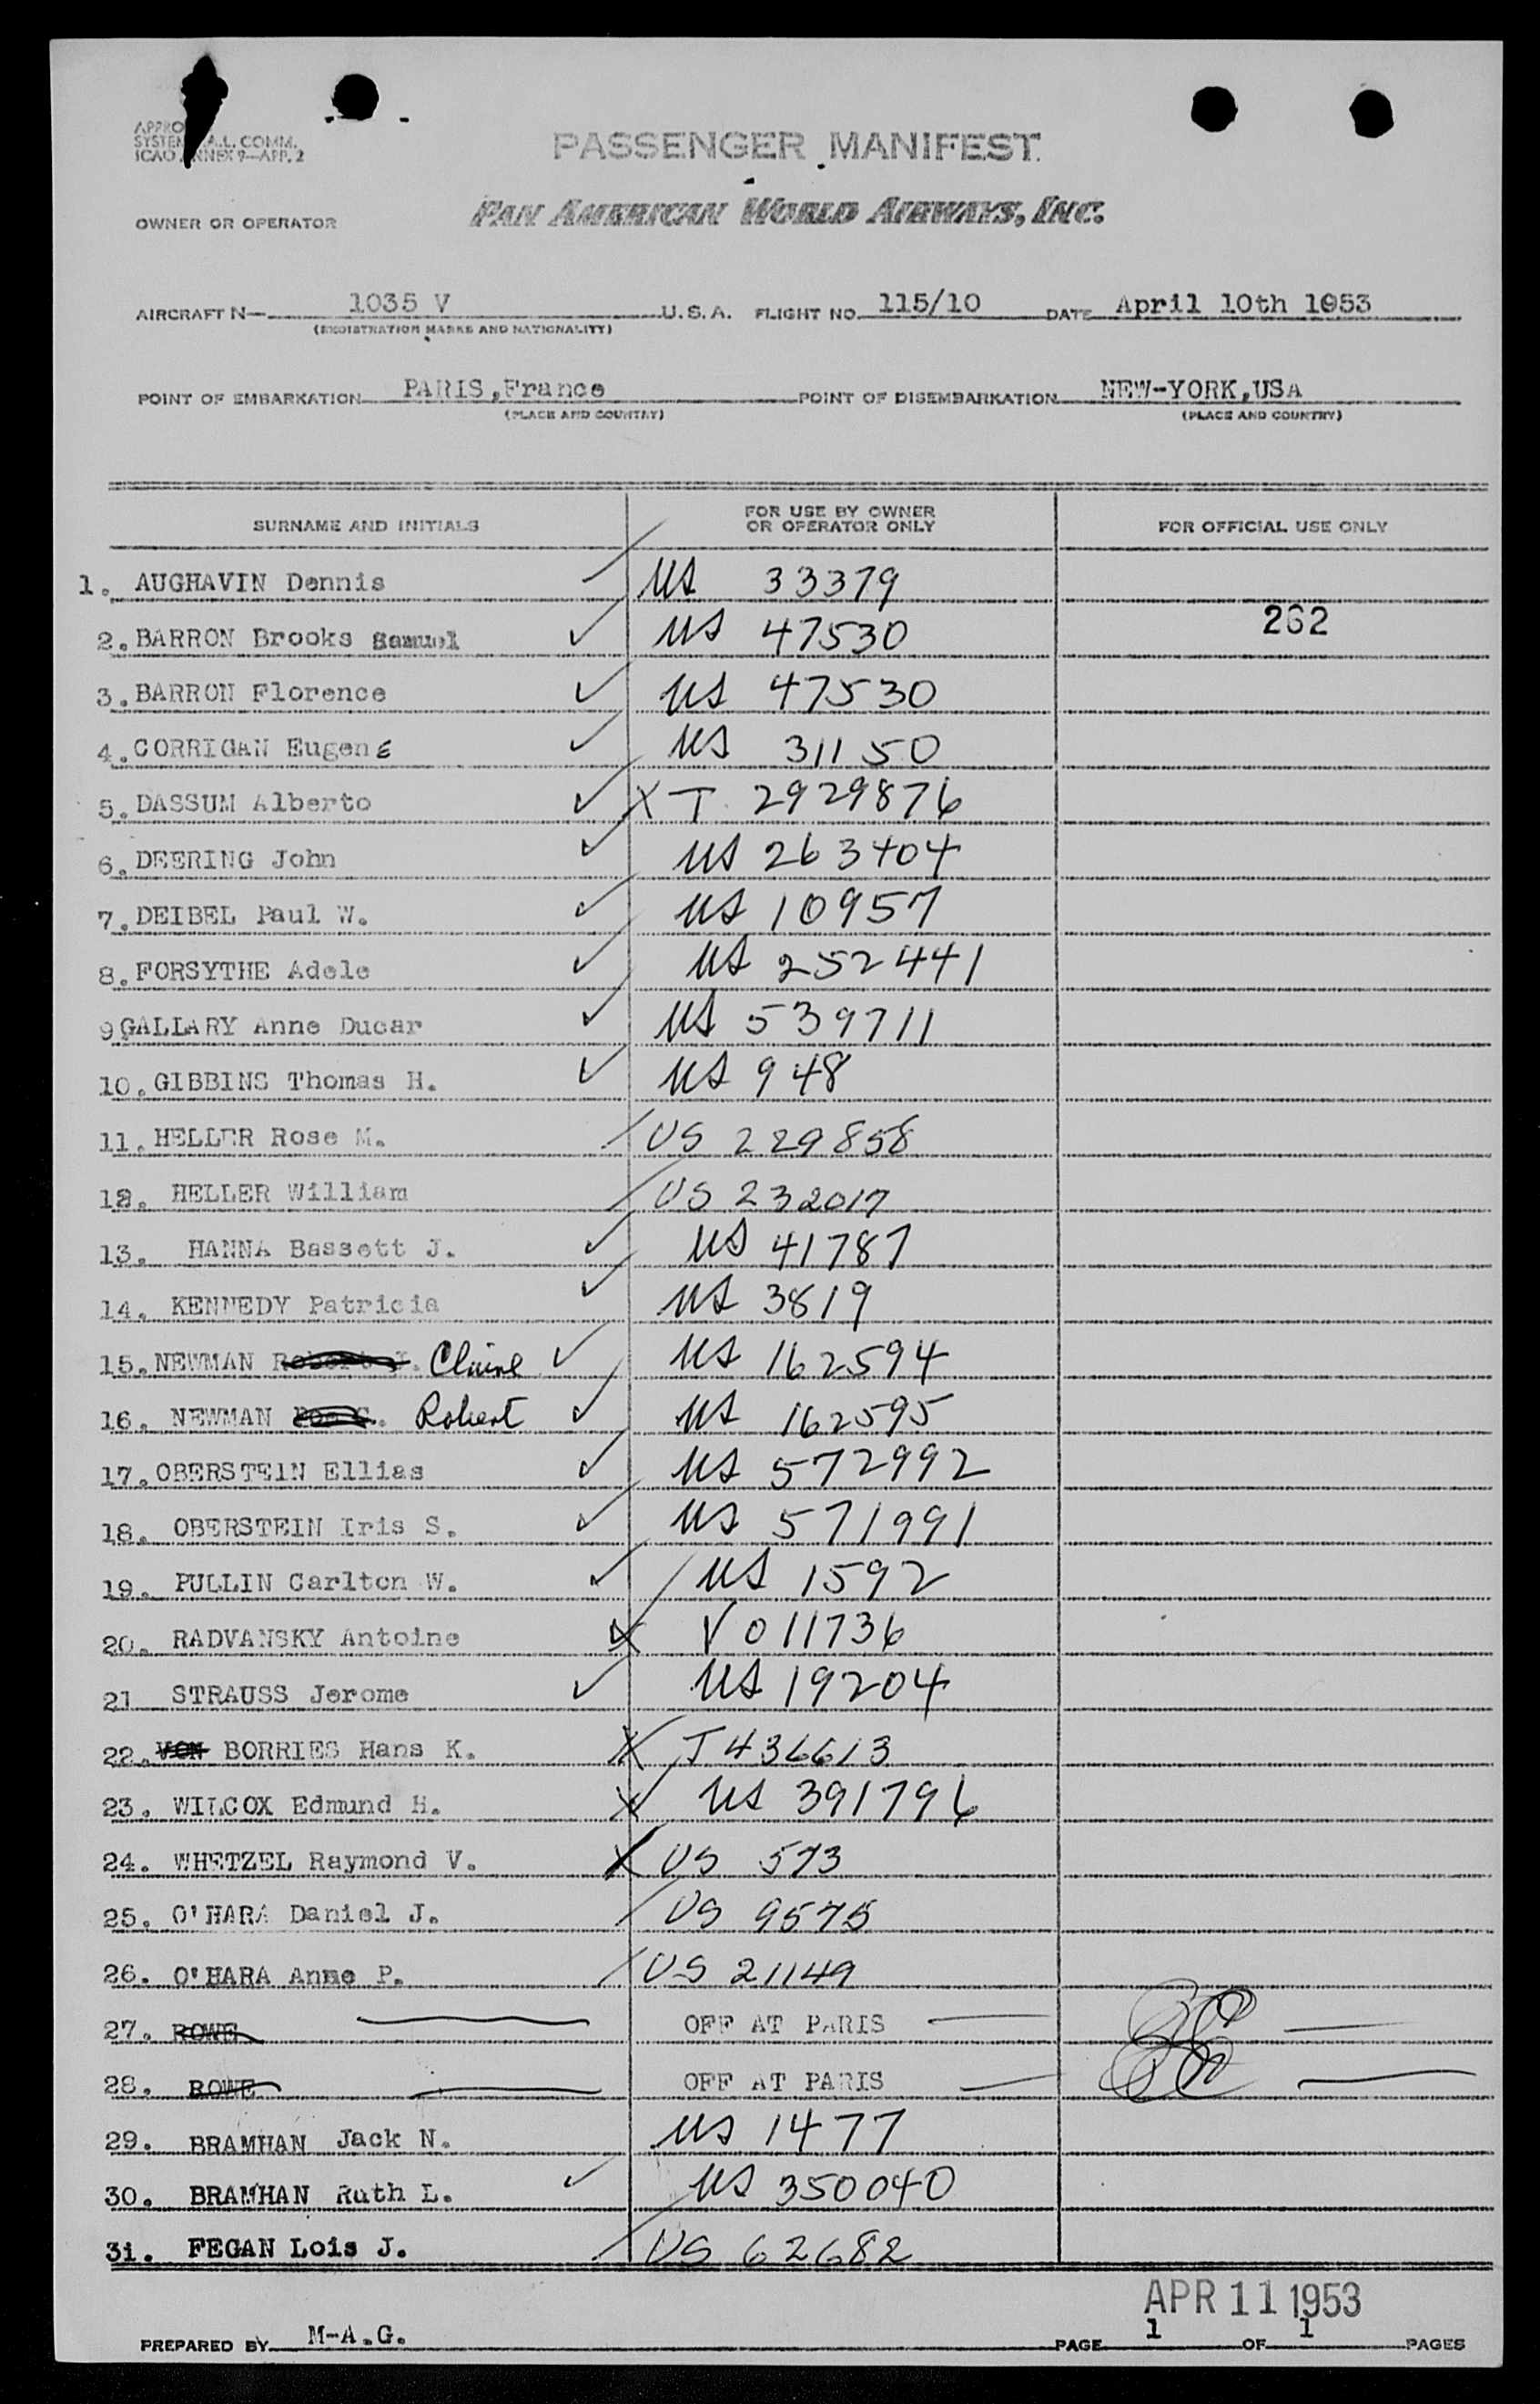 SYSTEM A.L. COMM.
ICAO ANNEX 9—APP. 2
PASSENGER MANIFEST
OWNER OR OPERATOR PAN AMERICAN WORLD AIRWAYS, INC.
AIRCRAFT N— 1035 V U.S.A. FLIGHT NO. 115/10 DATE April 10th 1953
(REGISTRATION MARKS AND NATIONALITY)
POINT OF EMBARKATION PARIS,France POINT OF DISEMBARKATION NEW-YORK,USA
(PLACE AND COUNTRY) (PLACE AND COUNTRY)
SURNAME AND INITIALS FOR USE BY OWNER OR OPERATOR ONLY FOR OFFICIAL USE ONLY
1. AUGHAVIN Dennis US 33379
262
2. BARRON Brooks Samuel US 47530
3. BARRON Florence US 47530
4. CORRIGAN Eugene US 31150
5. DASSUM Alberto T 2929876
6. DEERING John US 263404
7. DEIBEL Paul W. US 10957
8. FORSYTHE Adele US 252441
9 GALLARY Anne Ducar US 539711
10. GIBBINS Thomas H. US 948
11. HELLER Rose M. US 229858
12. HELLER William US 232017
13. HANNA Bassett J. US 41787
14. KENNEDY Patricia US 3819
15. NEWMAN Claire US 162594
16. NEWMAN Robert US 162595
17. OBERSTEIN Ellias US 572992
18. OBERSTEIN Iris S. US 571991
19. PULLIN Carlton W. US 1592
20. RADVANSKY Antoine V 011736
21 STRAUSS Jerome US 19204
22. VON BORRIES Hans K. T 436613
23. WILCOX Edmund H. US 391796
24. WHETZEL Raymond V. US 573
25. O'HARA Daniel J. US 9575
26. O'HARA Anne P. US 21149
27. ROWE OFF AT PARIS
28. ROWE OFF AT PARIS
29. BRAMHAN Jack N. US 1477
30. BRAMHAN Ruth L. US 350040
31. FEGAN Lois J. US 62682
APR 11 1953
PREPARED BY M-A.G. PAGE 1 OF 1 PAGES